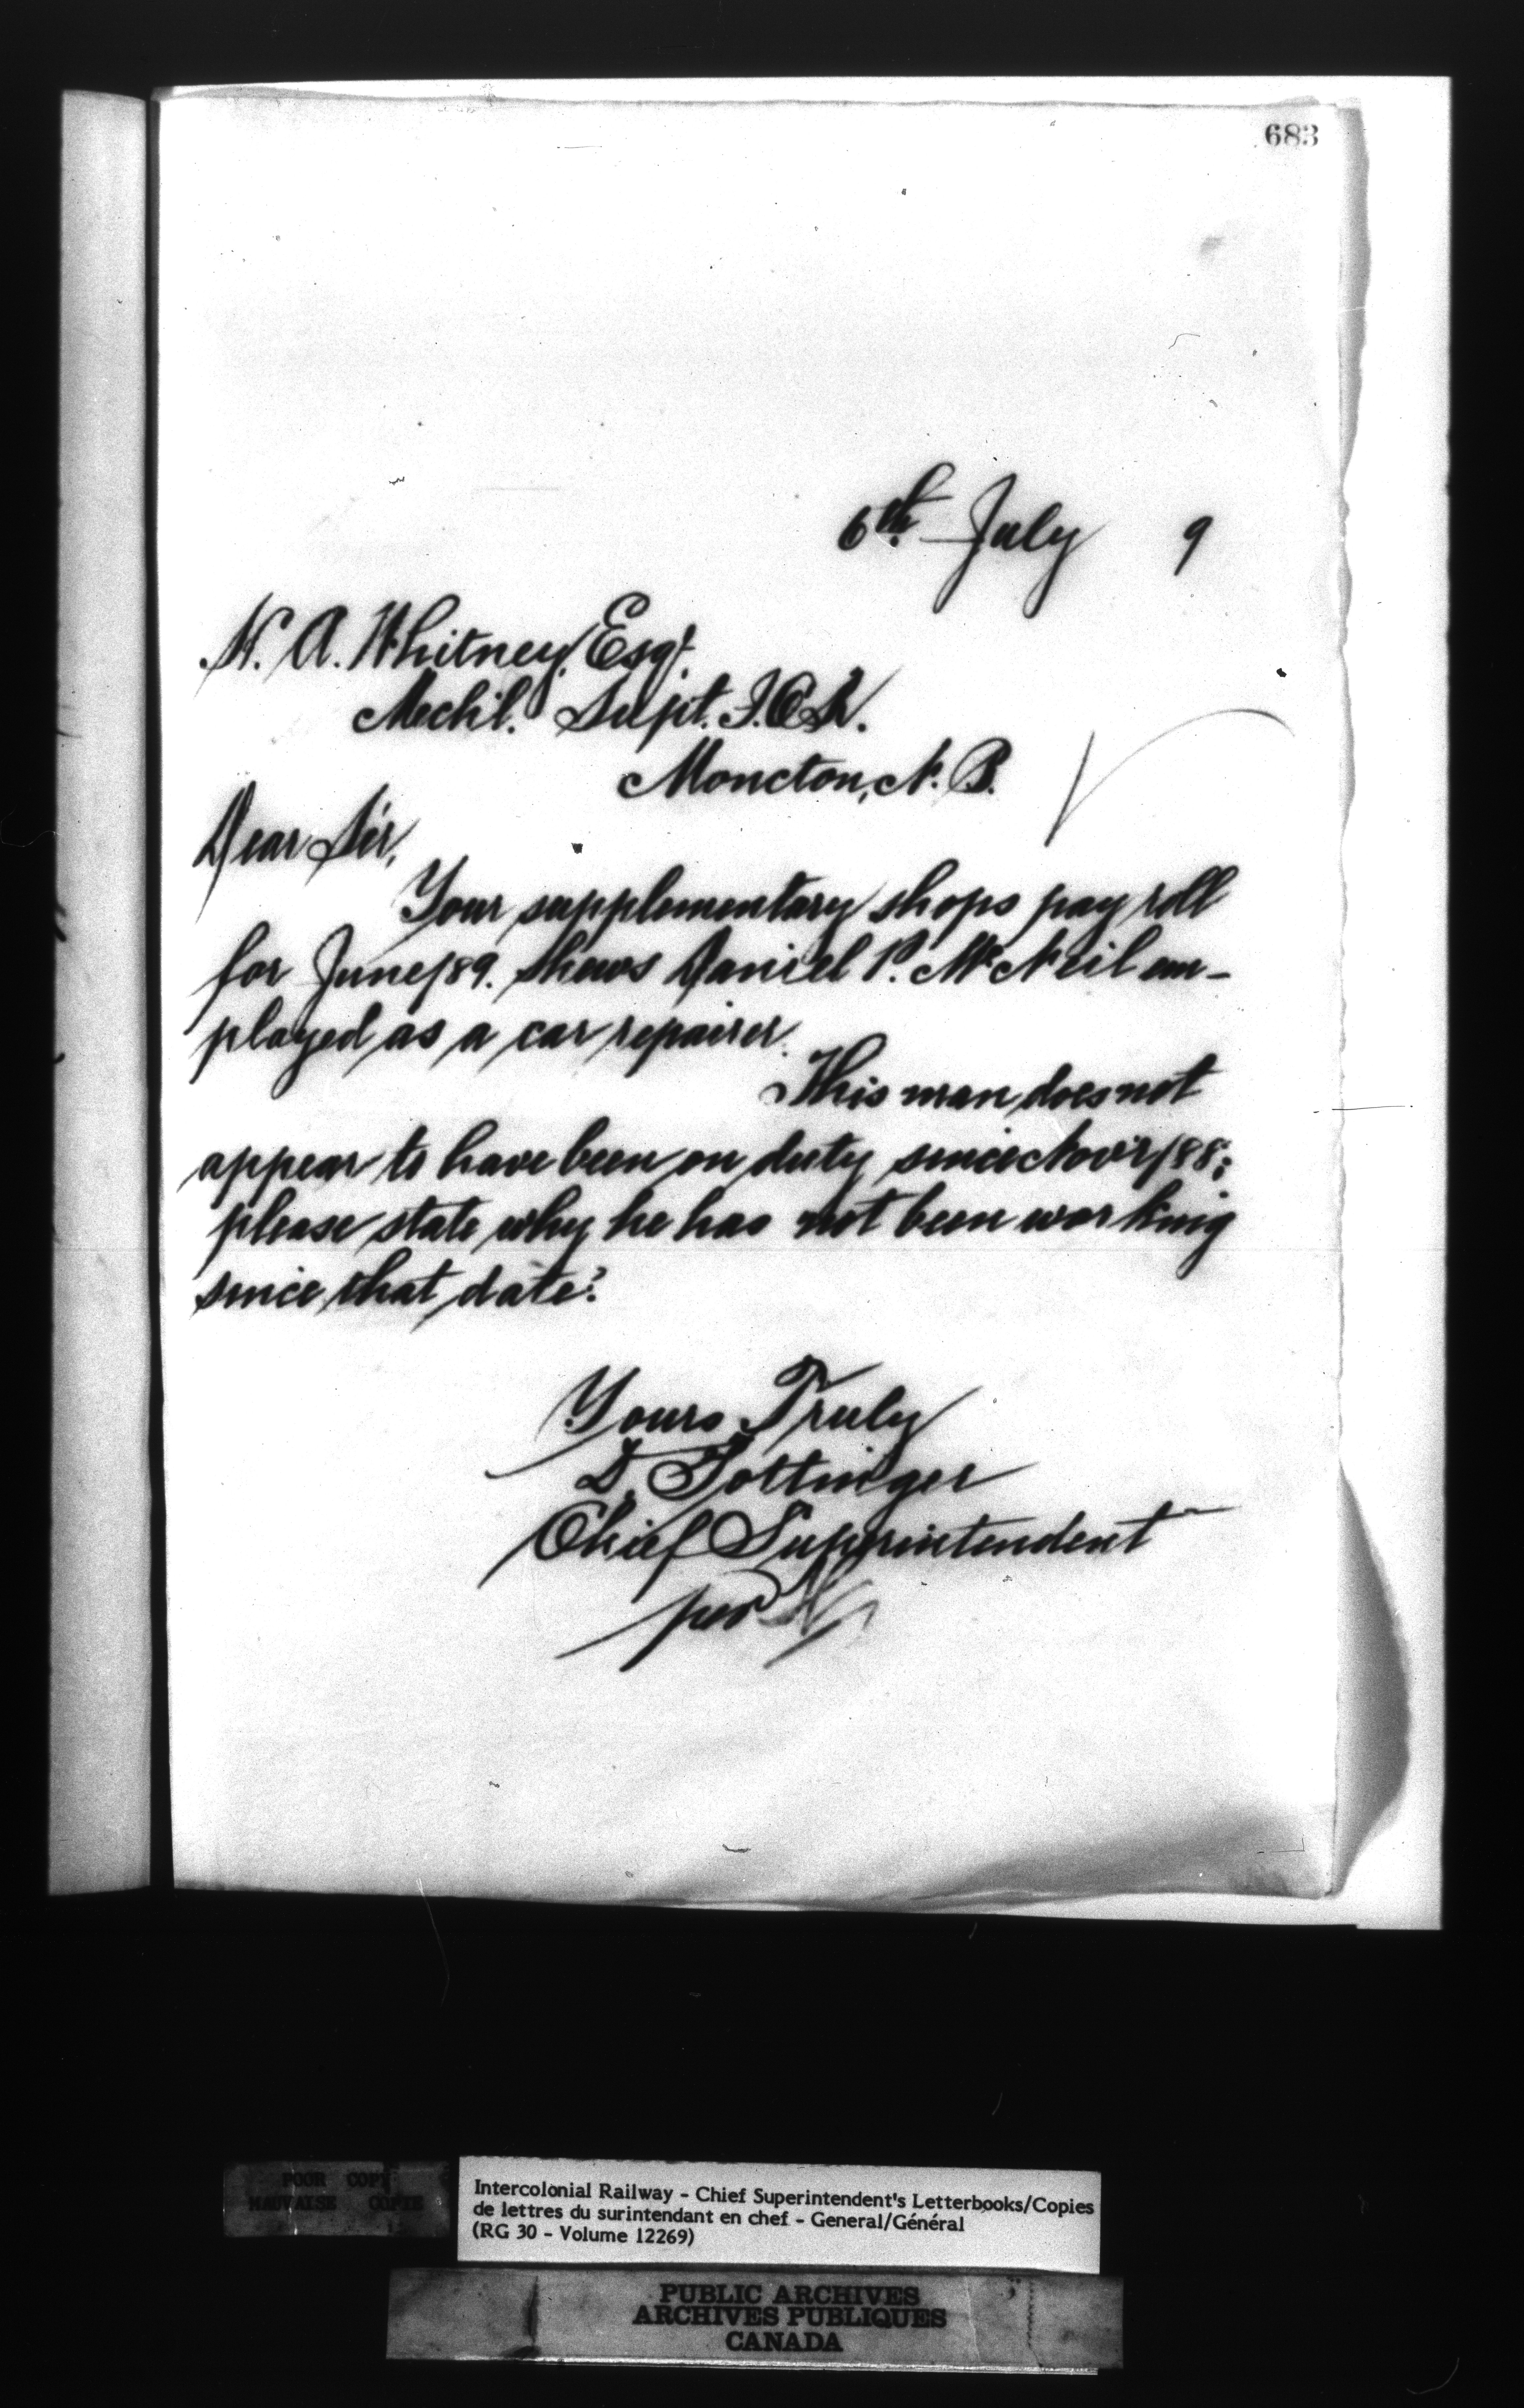 683
6th July 9
H. A. Whitney Esqr.
Mechl. Supt. I.C.R.
Moncton, N. B.
Dear Sir,
Your supplementary shops pay roll
for June/89. shews Daniel P. McNeil em-
ployed as a car repairer.
This man does not
appear to have been on duty since Nov'r/88;
please state why he has not been working
since that date?
Yours Truly
D. Pottinger
Chief Superintendent
per
POOR COPY
MAUVAISE COPIE
Intercolonial Railway - Chief Superintendent's Letterbooks/Copies
de lettres du surintendant en chef - General/Général
(RG 30 - Volume 12269)
PUBLIC ARCHIVES
ARCHIVES PUBLIQUES
CANADA